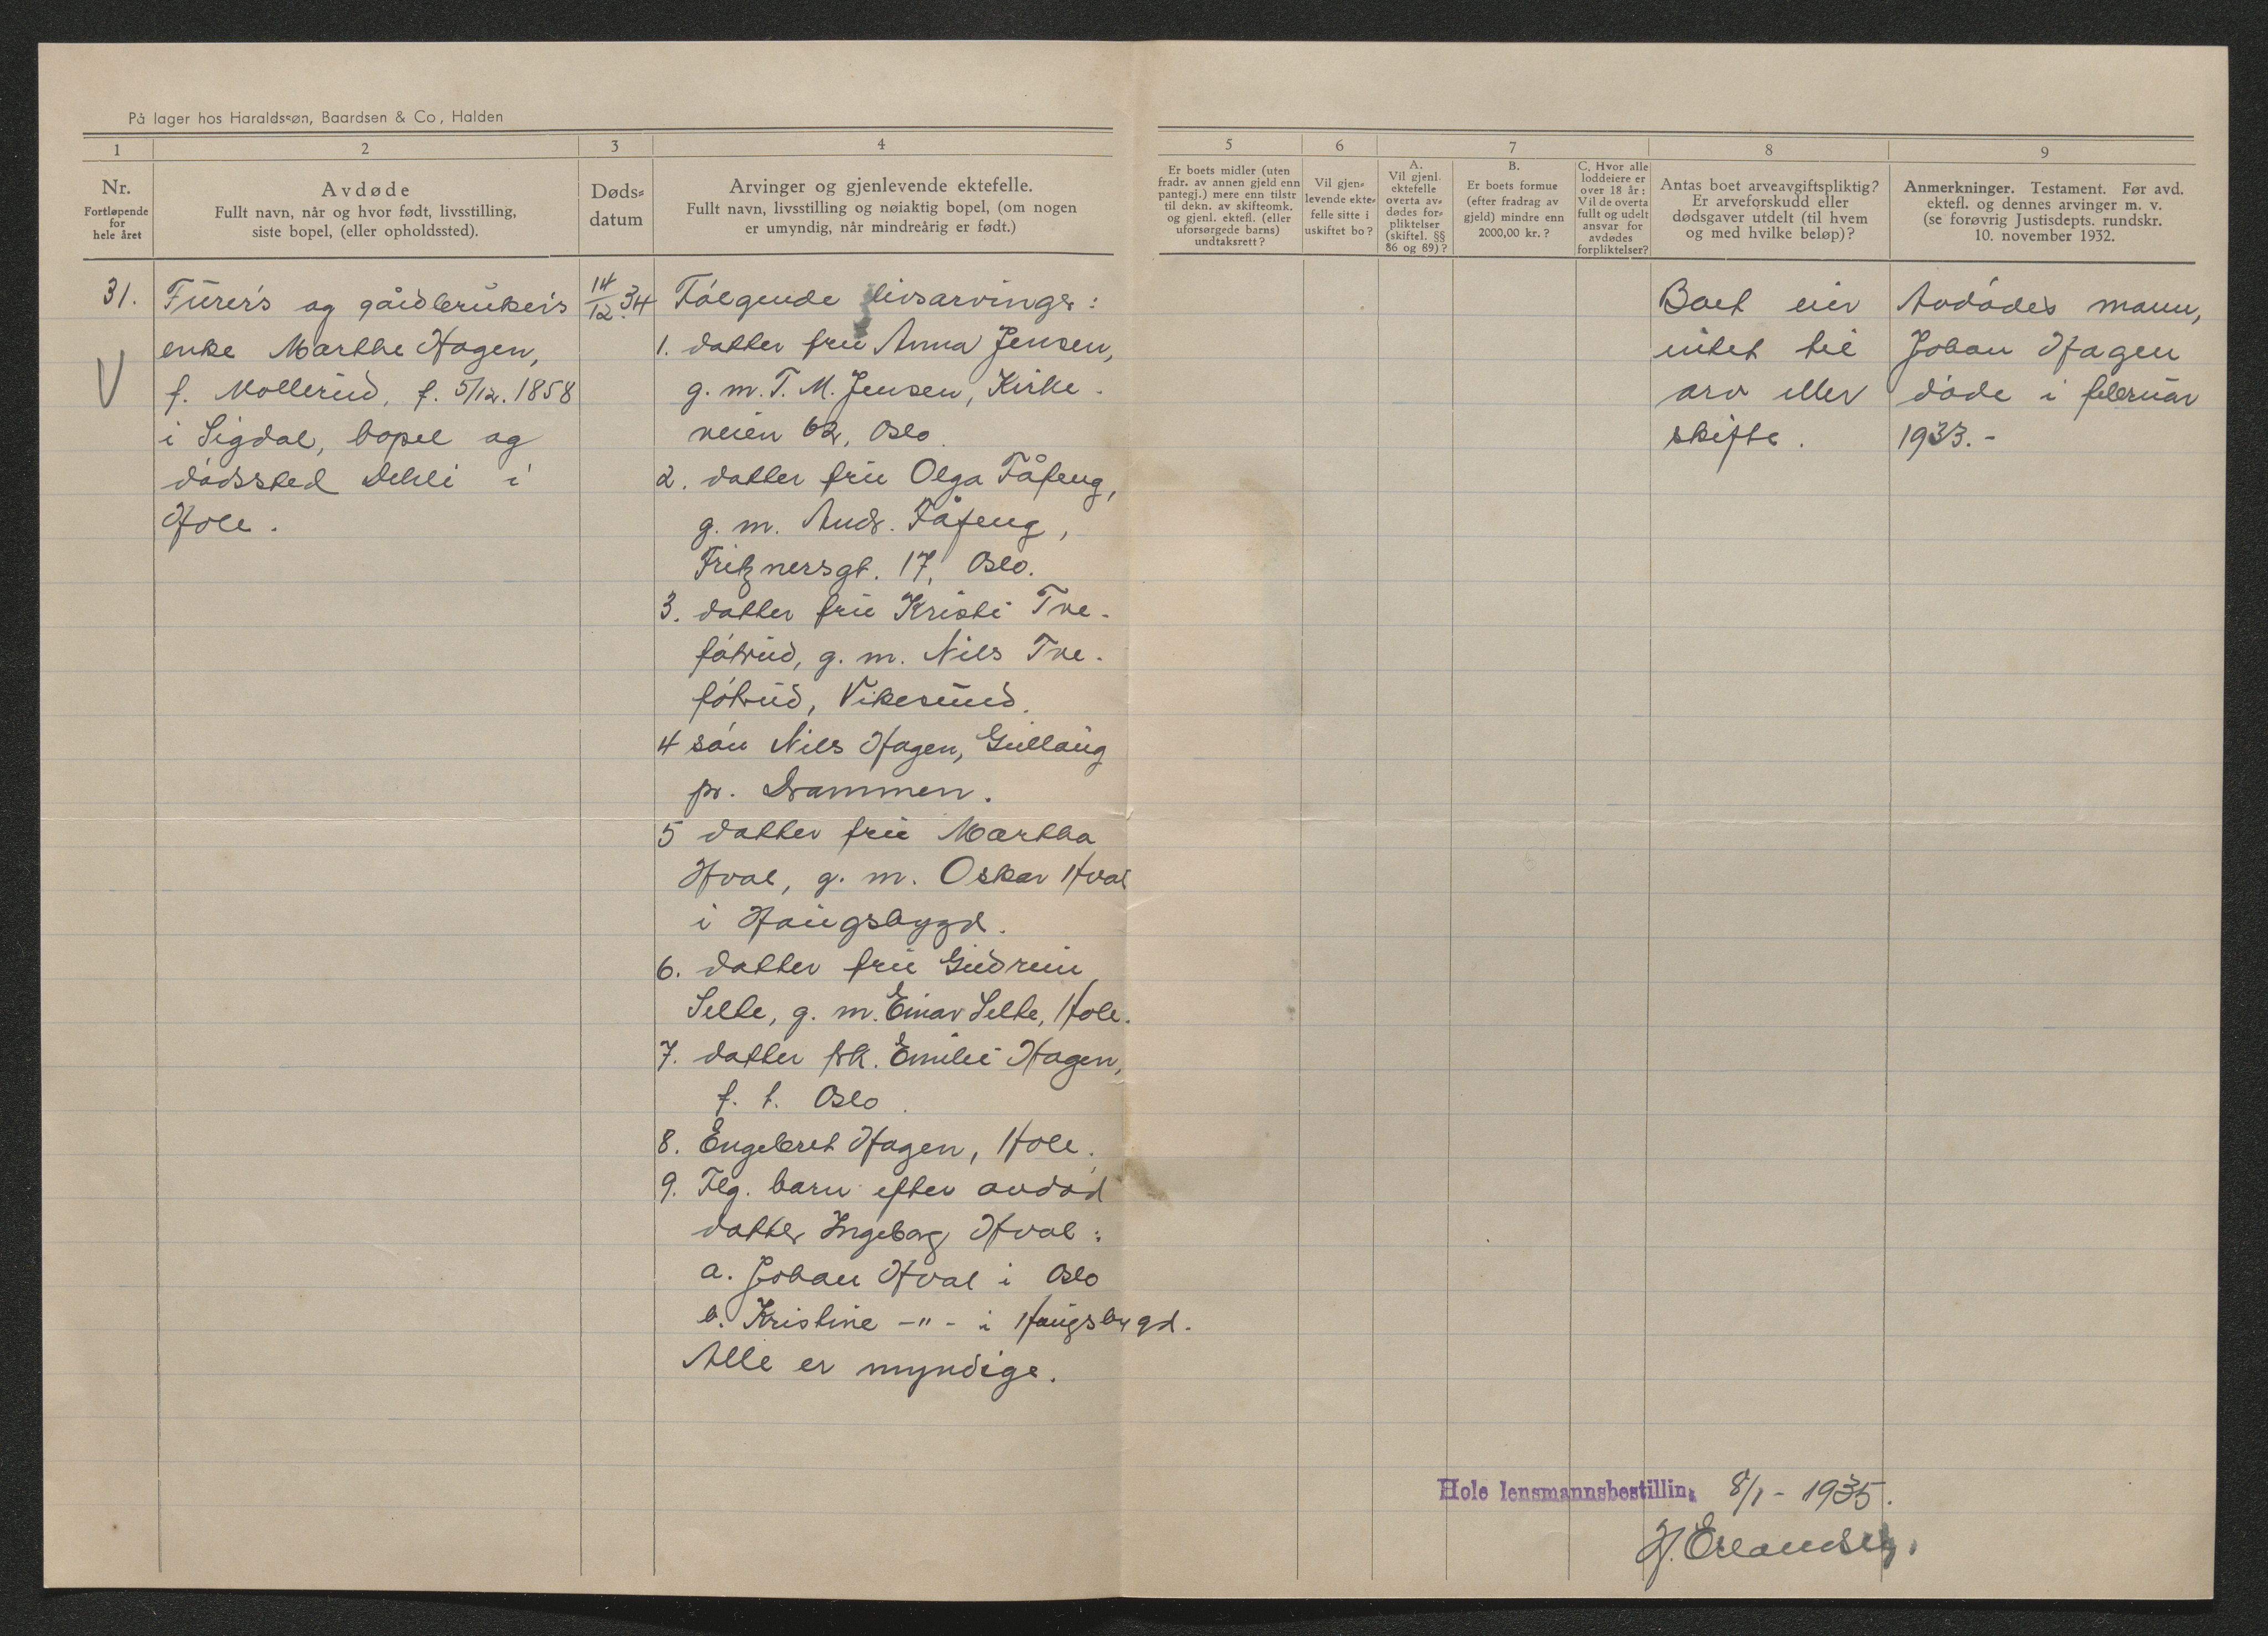 På lager hos Haraldssøn, Baardsen & Co, Halden
1
2
3
4
5
6
7
8
9
Nr.
Fortløpende
for
hele året
Avdøde
Fullt navn, når og hvor født, livsstilling,
siste bopel, (eller opholdssted).
Døds-
datum
Arvinger og gjenlevende ektefelle.
Fullt navn, livsstilling og nøiaktig bopel, (om nogen
er umyndig, når mindreårig er født.)
Er boets midler (uten
fradr. av annen gjeld enn
pantegj.) mere enn tilstr
til dekn. av skifteomk.
og gjenl. ektefl. (eller
uforsørgede barns)
undtaksrett?
Vil gjen-
levende ekte-
felle sitte i
uskiftet bo?
A.
Vil gjenl.
ektefelle
overta av-
dødes for-
pliktelser
(skiftel. §§
86 og 89)?
B.
Er boets formue
(efter fradrag av
gjeld) mindre enn
2000,00 kr.?
C. Hvor alle
loddeiere er
over 18 år:
Vil de overta
fullt og udelt
ansvar for
avdødes
forpliktelser?
Antas boet arveavgiftspliktig?
Er arveforskudd eller
dødsgaver utdelt (til hvem
og med hvilke beløp)?
Anmerkninger. Testament. Før avd.
ektefl. og dennes arvinger m. v.
(se forøvrig Justisdepts. rundskr.
10. november 1932.
31.
V
Furer's og gårdbruker's
enke Marthe Hagen,
f. Mollerud, f. 5/12. 1858
i Sigdal, bopel og
dødssted Dehli i
Hole.
14/12. 34
Følgende livsarvinger:
1. datter fru Anna Jensen,
g. m. T. M. Jensen, Kirke-
veien 62, Oslo.
2. datter fru Olga Fåfeng,
g. m. Andr. Fåfeng,
Fritznersgt. 17, Oslo.
3. datter fru Kristi Tve-
føtrud, g. m. Nils Tve-
føtrud, Vikesund.
4 søn Nils Hagen, Gullaug
pr. Drammen.
5 datter fru Martha
Hval, g. m. Oskar Hval
i Haugsbygd.
6. datter fru Gudrun
Selte, g. m. Einar Selte, Hole.
7. datter frk. Emilie Hagen,
f. t. Oslo.
8. Engebret Hagen, Hole.
9. Flg. barn efter avdød
datter Ingeborg Hval:
a. Johan Hval i Oslo
b. Kristine -"- i Haugsbygd.
Alle er myndige.
Boet eier
intet til
arv eller
skifte.
Avdødes mann,
Johan Hagen
døde i februar
1933.-
Hole lensmannsbestilling 8/1 - 1935.
H. Erlandsen.